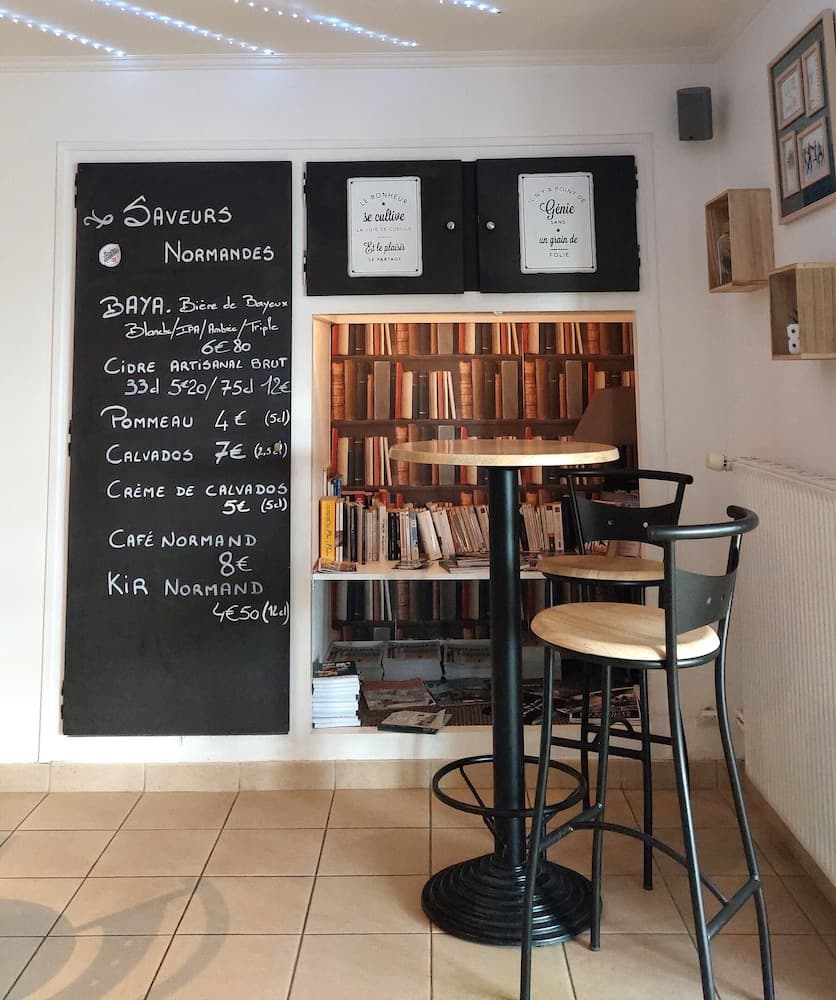 Saveurs
Normandes
BAYA. Bière de Bayeux
Blanche/IPA/Ambrée/Triple
6€80
Cidre artisanal brut
33cl 5€20/75cl 12€
Pommeau 4€ (5cl)
Calvados 7€ (2,5cl)
Crème de calvados
5€ (5cl)
Café Normand
8€
Kir Normand
4€50 (12cl)
LE BONHEUR
se cultive
LA JOIE SE CUEILLE
Et le plaisir
SE PARTAGE
IL N'Y A POINT DE
Génie
SANS
un grain de
FOLIE